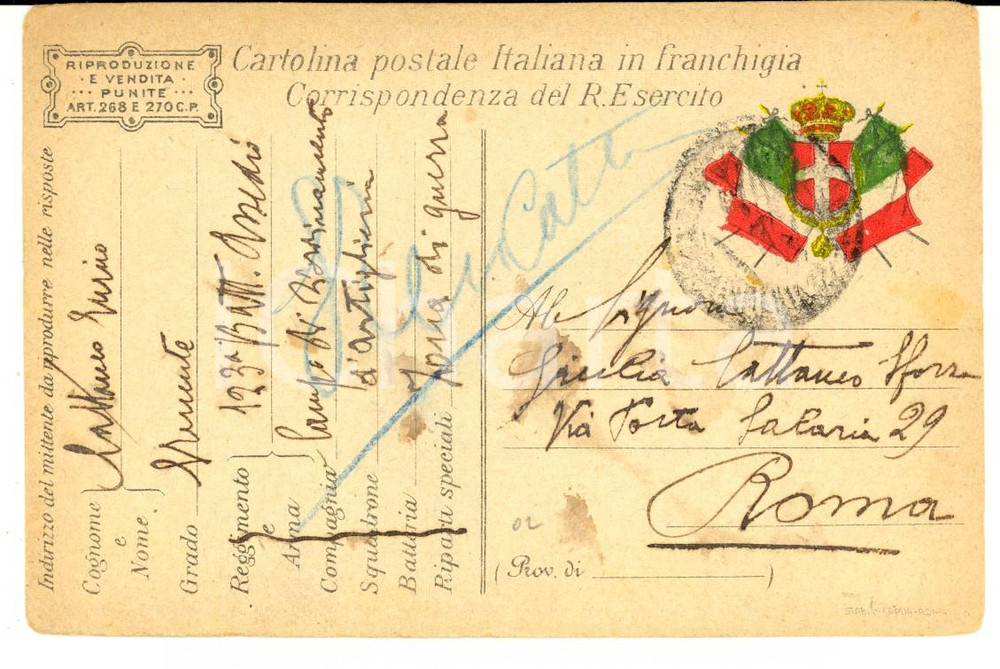 RIPRODUZIONE
E VENDITA
PUNITE
ART. 268 E 270 C.P.
Cartolina postale Italiana in franchigia
Corrispondenza del R. Esercito
Indirizzo del mittente da riprodurre nelle risposte
Cognome e Nome Cattaneo
Grado Tenente
Reggimento e Arma 123a Batt.
Compagnia Campi di
Squadrone d'artiglieria
Batteria Zona di guerra
Riparti speciali
Alla Signora
Giulia Cattaneo Sforza
Via Porta Salaria 29
Roma
(Prov. di )